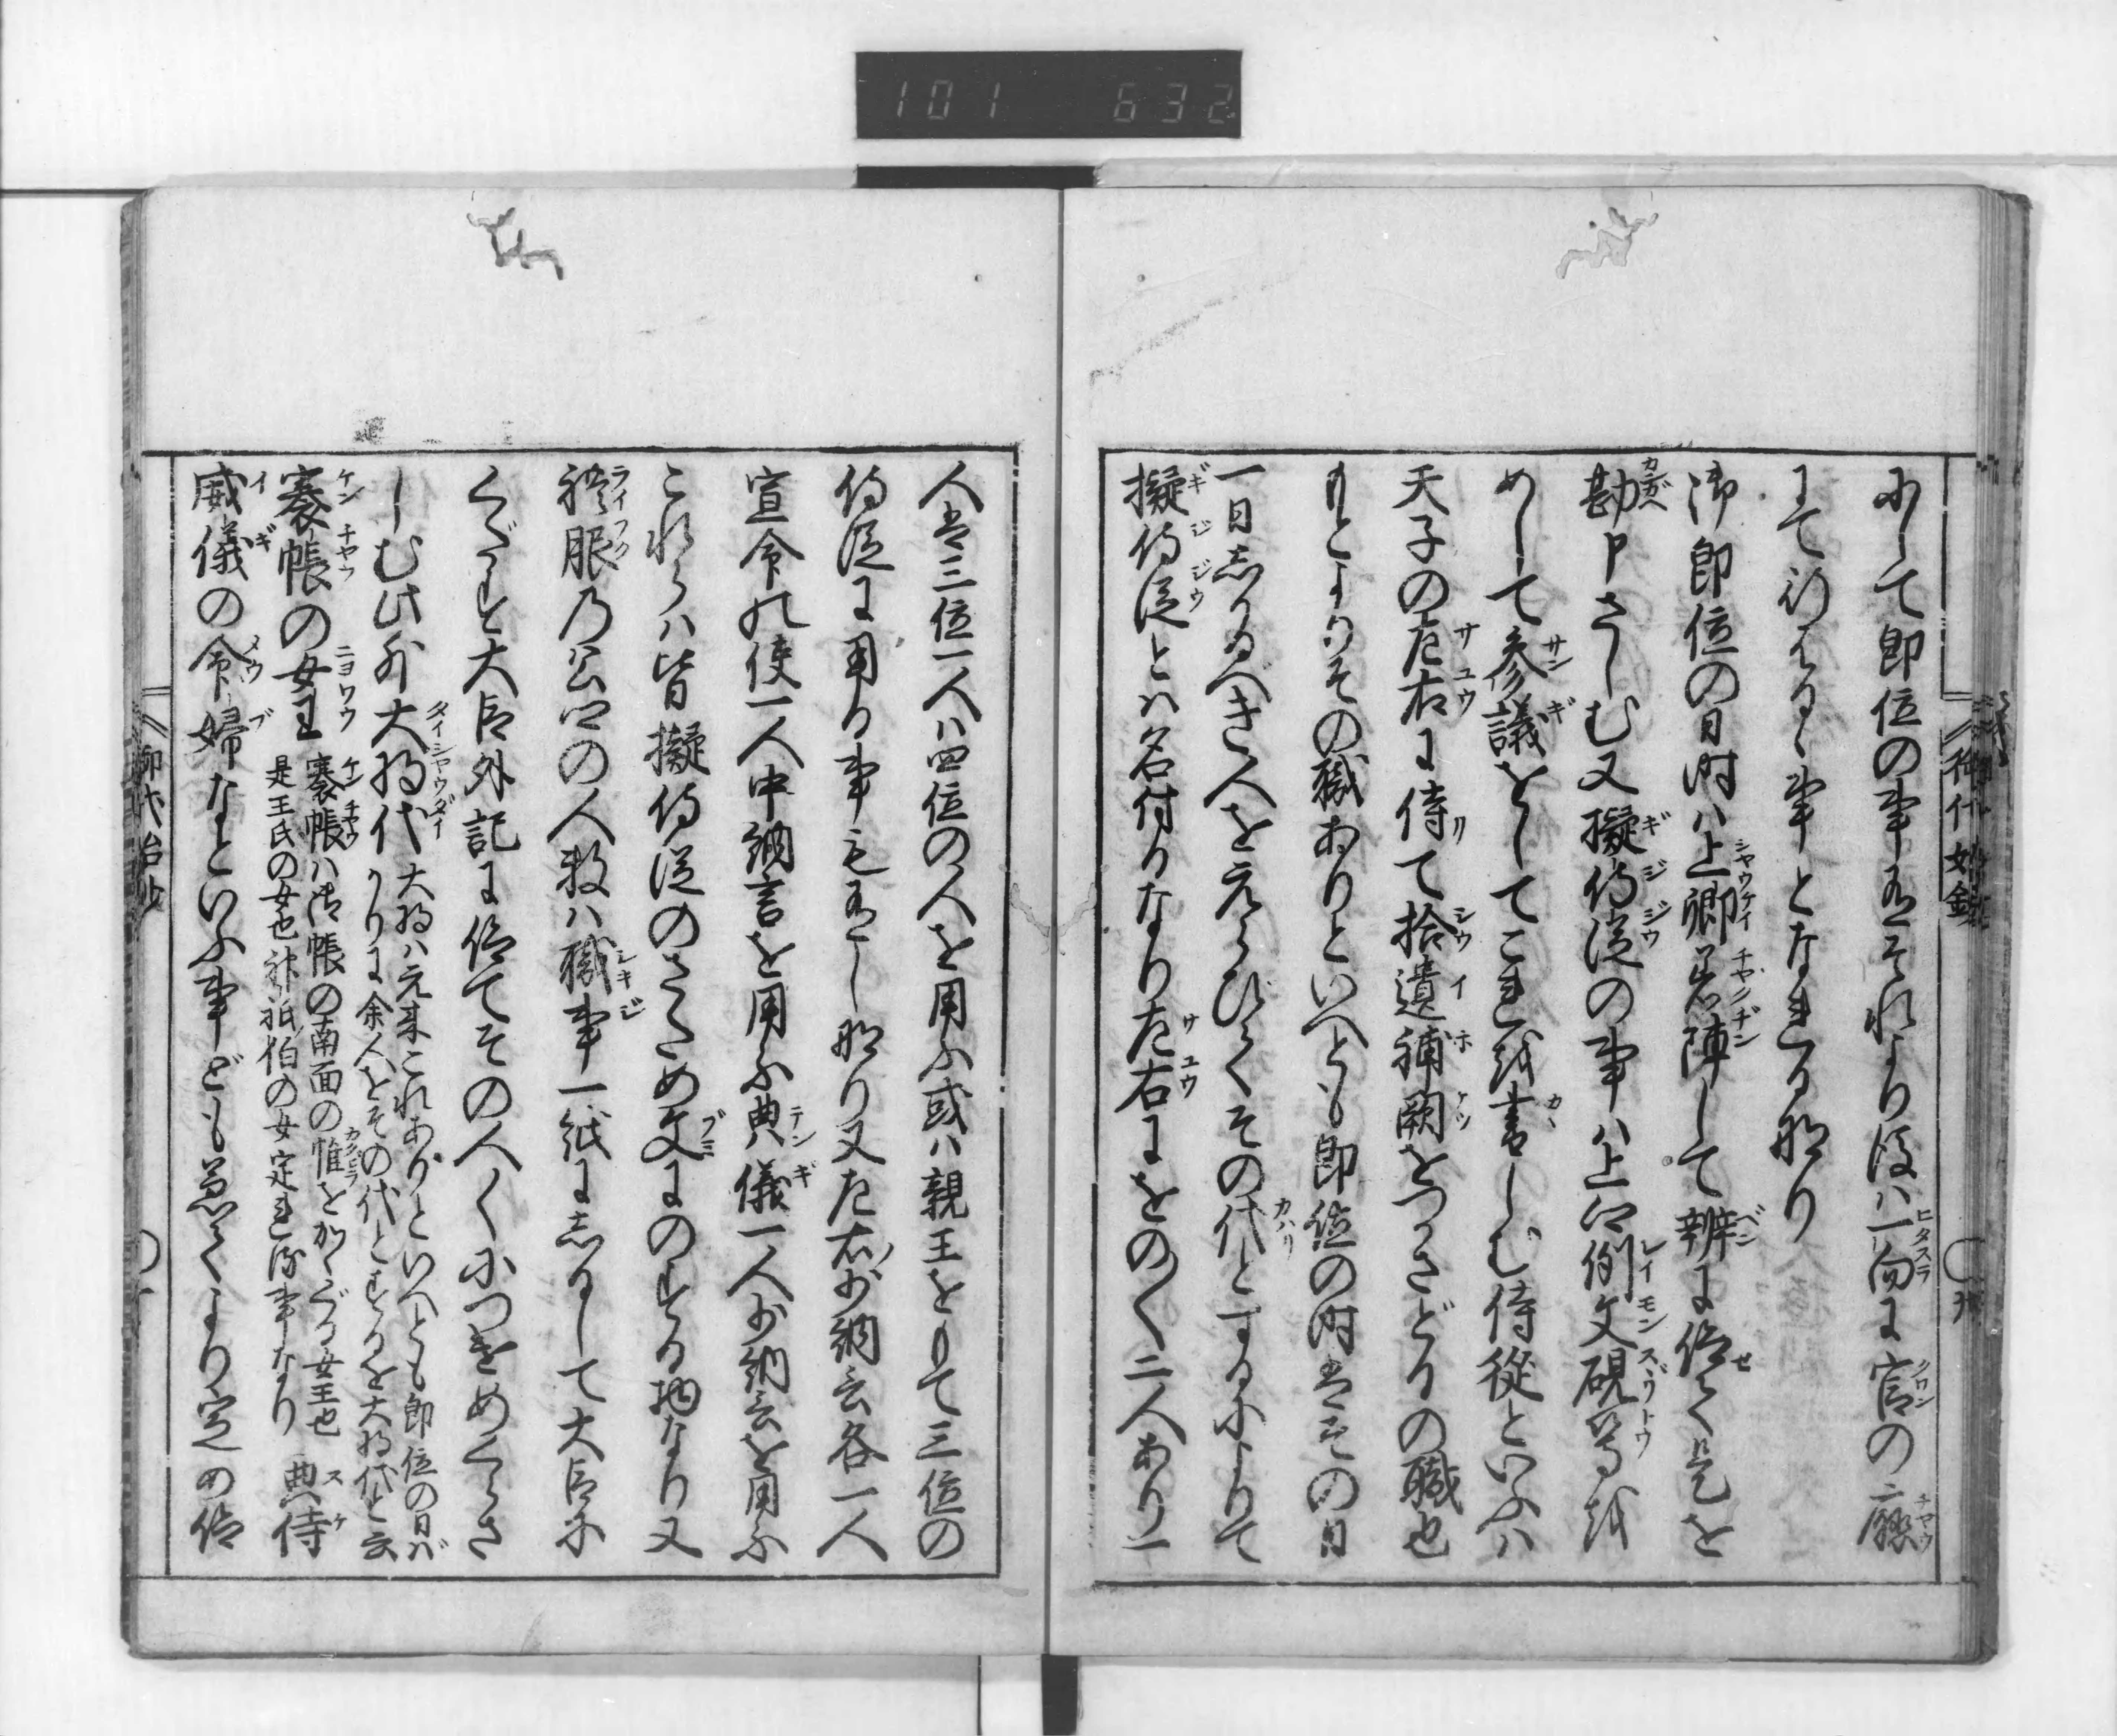 101 632
にして即位の事有それより後ハ一向に官の廰
にて行るゝ事となれる也
御即位の日時ハ上卿着陣して辨に仰て是を
勘申さしむ又擬侍従の事ハ上卿例文硯等を
めして参議をしてこれを書しむ侍從といふハ
天子の左右に侍て拾遺補闕をつかさどるの職也
もとよりその職ありといへとも即位の時はその日
一日しかるべき人をえらびてその代とするによりて
擬侍従とハ名付るなり左右にをの〱二人あり一
人は三位一人ハ四位の人を用ふ或ハ親王をもて三位の
侍従に用る事も有し也又左右少納言各一人
宣命の使一人中納言を用ふ典儀一人少納言を用ふ
これらハ皆擬侍従のさため文にのする物なり又
禮服の公卿の人数ハ職事一紙にしるして大臣に
くだすを大臣外記に仰てその人〱につきめくらさ
しむ此外大将代大将ハ元来これありといへとも即位の日ハ
かりに余人をその代とするを大将代と云
褰帳の女王褰帳ハ御帳の南面の帷をかゝぐる女王也
是王氏の女也神祇伯の女定れる事なり典侍
威儀の命婦なといふ事ども兼てより定め仰
御代始抄